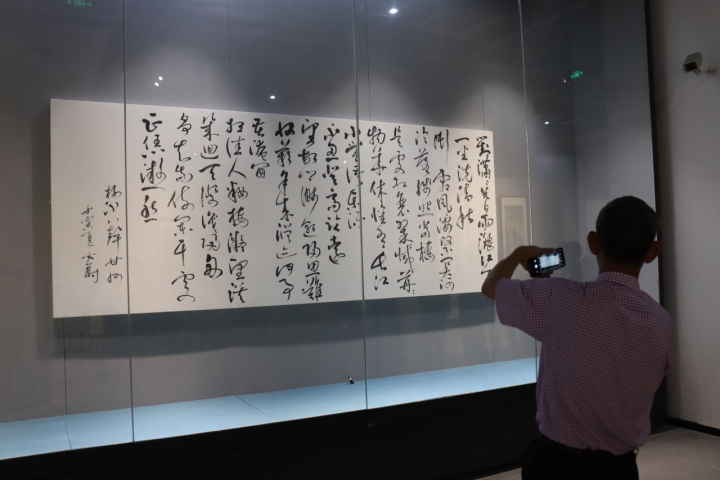 對瀟瀟暮雨灑江天
一番洗清秋
漸霜風凄緊關河
冷落殘照當樓
是處紅衰翠減苒苒
物華休惟有長江
水無語東流
不忍登高臨遠
望故鄉渺邈歸思難
收嘆年來蹤跡何事
苦淹留
想佳人妝樓顒望誤
幾回天際識歸舟
爭知我倚闌干處
正恁凝愁
柳永八聲甘州